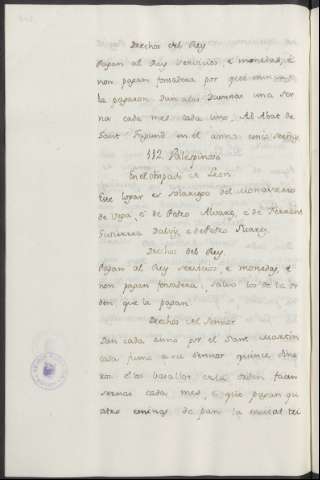 Derechos del Rey
Pagan al Rey servicios, e monedas, e
non pagan fonsadera por que nunca
la pagaron Dan alas Duennas una ser
na cada mes cada uno, Al Abat de
Sant Fagund en el anno
112. Palespinoso
En el obispado de Leon
Este logar es solariego del Monasterio
de Vega, e de Pedro Alvarez, e de Ferrant
Gutierrez e de Pedro Suarez
Derechos del Rey.
Pagan al Rey servicios e monedas, e
non pagan fonsadera, salvo los de la or
den, que la pagan
Derechos del Sennor
Dan cada anno por el Sant Martin
cada fumo a su sennor quince dine
ros e los vasallos dela orden facen
sernas cada mes, e que pagan qu
atro de pan la meitat tri